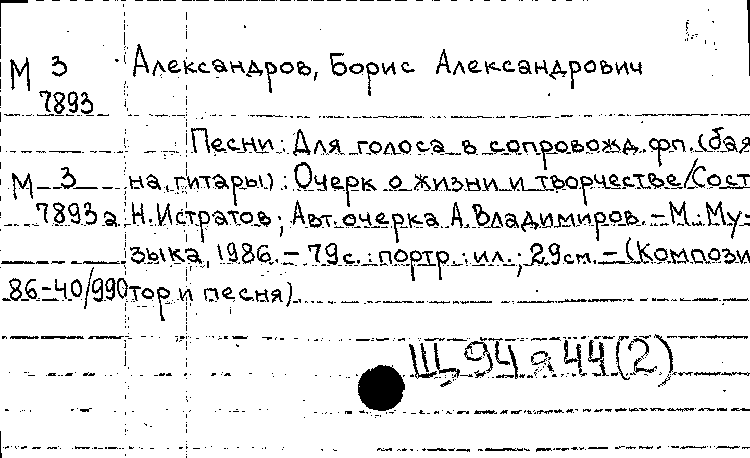 М 3 Александров, Борис Александрович
7893
Песни: Для голоса в сопровожд. фп. (бая
М 3 на, гитары): Очерк о жизни и творчестве/Сост
7893а Н.Истратов; Авт. очерка А.Владимиров. – М.: Му-
зыка, 1986. – 79с.: портр.: ил.; 29см. – (Компози
86-40/990 тор и песня).
Щ 94 я 44 (2)